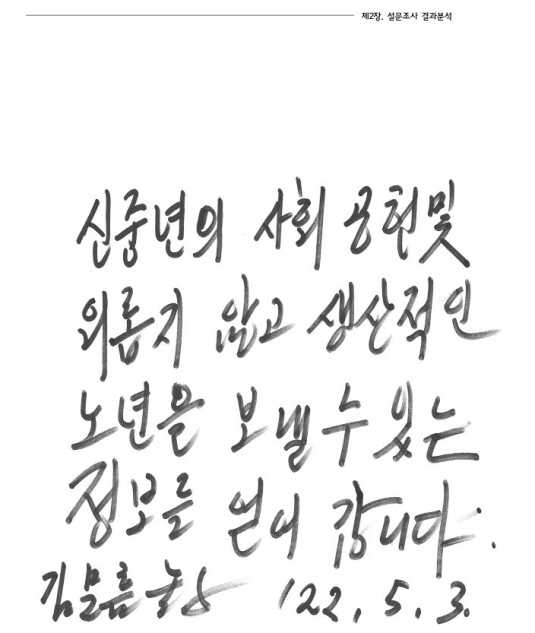 제2장. 설문조사 결과분석
신중년의 사회 공헌및
외롭지 않고 생산적인
노년을 보낼수있는
정보를 얻어 갑니다.
김 '22. 5. 3.